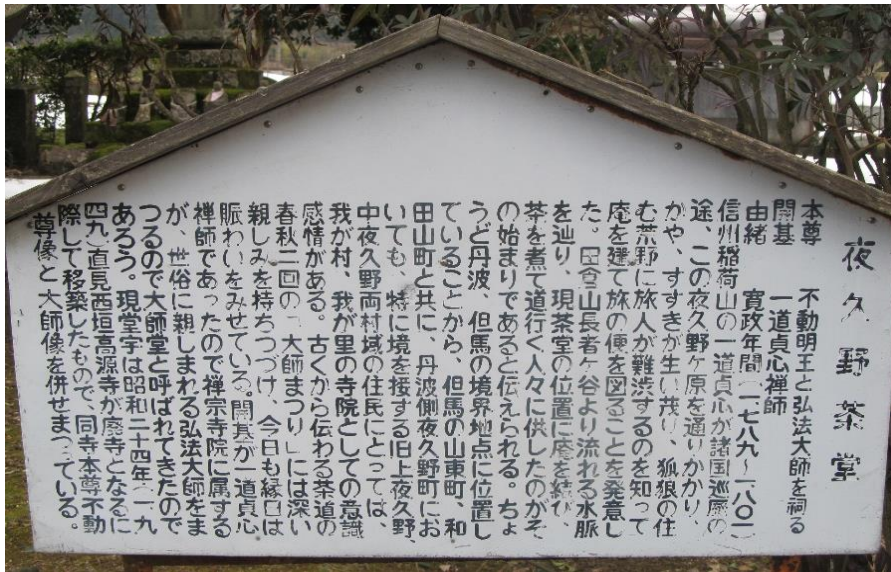 夜久野茶堂
本尊　不動明王と弘法大師を祠る
開基　一道貞心禅師
由緒　寛政年間(一七八九〜一八〇一)
信州稲荷山の一道貞心が諸国巡廓の
途、この夜久野ヶ原を通りかかり、
かや、すすきが生い茂り、狐狼の住
む荒野に旅人が難渋するのを知って
庵を建て旅の便を図ることを発意し
た。田倉山長者ヶ谷より流れる水脈
を辿り、現茶堂の位置に庵を結び、
茶を煮て道行く人々に供したのがそ
の始まりであると伝えられる。ちょ
うど丹波、但馬の境界地点に位置し
ていることから、但馬の山東町、和
田山町と共に、丹波側夜久野町にお
いても、特に境を接する旧上夜久野、
中夜久野両村域の住民にとっては、
我が村、我が里の寺院としての意識
感情がある。古くから伝わる茶道の
春秋二回の「大師まつり」には深い
親しみを持ちつづけ、今日も縁日は
賑わいをみせている。開基が一道貞心
禅師であったので禅宗寺院に属する
が、世俗に親しまれる弘法大師をま
つるので大師堂と呼ばれてきたので
あろう。現堂宇は昭和二十四年(一九
四九)直見西垣高源寺が廃寺となるに
際して移築したもので、同寺本尊不動
尊像と大師像を併せまつっている。